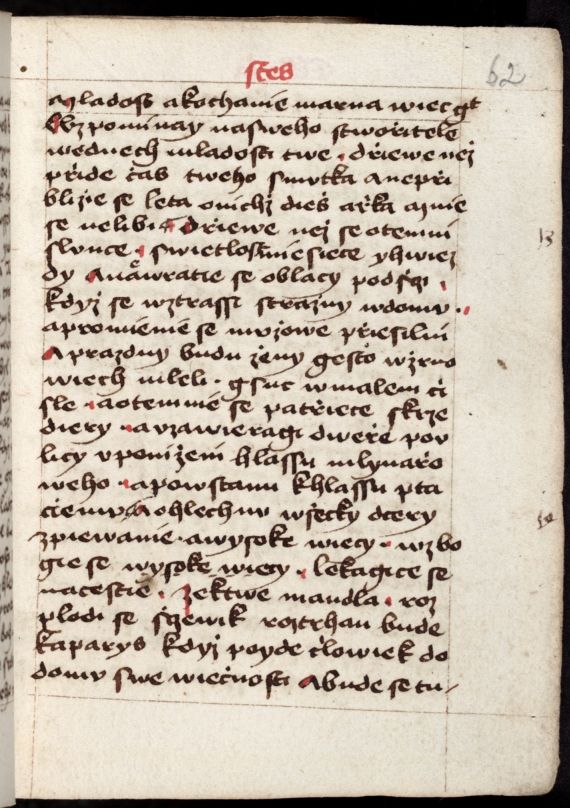 stes
62
mladost a kochanie marna wiec gt
Wzpominay na sweho stworitele
we dnech mladosti twe . driewe nez
přide čas tweho smutka a nepři
blizie se leta o nichz dieš
se nelibie driewe nez se otemni
slunce . swietlost miesiece y hwiez
dy A nawratie se oblacy po dsstí .
kdyz se wztrassi strazny w domu .
a promienie se muzowe přesilni
A prazdny budu zeny gesto w zrno
wiech mleli . gsuc w malem či
sle . a otemnie se patřiece skrze
diery . a uzawieragi dweře pou
licy u ponizeni hlassu mlynařo
weho . a powstanu k hlassu pta
ciemu A ohlechnu wšecky dcery
zpiewanie . a wysoke wiecy . wzbo
gie se wysoke wiecy . lekagice se
na cestie . zektwe mandla . roz
plodi se roztrhan bude
kaparys kdyz poyde člowiek do
domu swe wiečnosti A bude se tu